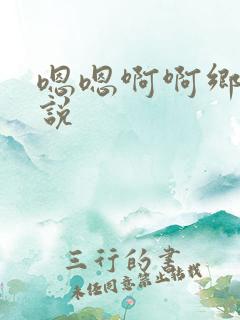 嗯嗯啊啊鄉
說
三行的書
未经同意禁止转载